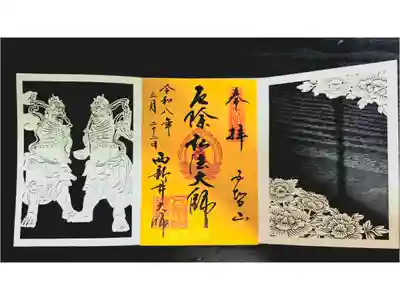 奉拝
五智山
厄除弘法大師
令和八年
三月
西新井大師